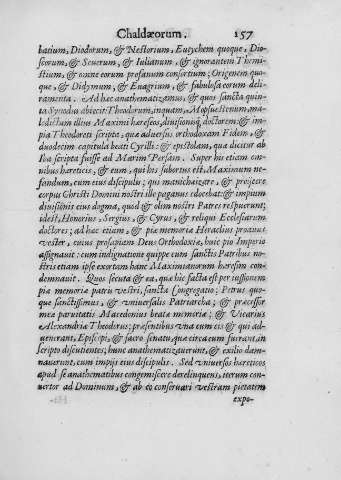 Chaldæorum. 157
batium, Diodorum, & Nestorium, Eutychem quoque, Dio-
scorum, & Seuerum, & Iulianum, & ignorantem Themi-
stium, & omne eorum profanum consortium; Origenem quo-
que, & Didymum, & Euagrium, & fabulosa eorum deli-
ramenta. Ad hæc anathematizamus, & quos sancta quin-
ta Synodus abiecit Theodorum, inquam, Mopsuestenum, ma-
ledictum illius Maximi hæreseos, divisionis doctorem; & im-
pia Theodoreti scripta, quæ aduersus orthodoxam Fidem, &
duodecim capitula beati Cyrilli: & epistolam, quæ dicitur ab
Iba scripta fuisse ad Marim Persam. Super his etiam om-
nibus hæreticis, & eum, qui his subortus est, Maximum ne-
fandum, cum eius discipulis; qui manichaizare, & proijcere
corpus Christi Domini nostri ille paganus edocebat: & impium
diuisionis eius dogma, quod & olim nostri Patres respuerunt;
idest, Honorius, Sergius, & Cyrus, & reliqui Ecclesiarum
doctores; ad hæc etiam, & pia memoria Heraclius proauus
vester, cuius prosapiam Deus Orthodoxiæ, huic pio Imperio
assignauit: cum indignatione quippe cum sanctis Patribus no-
stris etiam ipse exortam hanc Maximianorum hæresim con-
demnauit. Quos secuta & ea, quæ hic facta est per iussionem
piæ memoriæ patris vestri, sancta Congregatio; Petrus quo-
que sanctissimus, & vniuersalis Patriarcha; & præcessor
meæ paruitatis Macedonius beatæ memoriæ; & Vicarius
Alexandriæ Theodorus; præsentibus vna cum eis & qui ad-
uenerant, Episcopi, & sacro senatu, quæ circa eum fuerant, in
scripto discutientes; hunc anathematizauerunt, & exilio dam-
nauerunt, cum impijs eius discipulis. Sed vniuersos hæreticos
apud se anathematibus congemiscere derelinquens, iterum con-
uertor ad Dauinum, & ab eo conseruari vestram pietatem
expo-